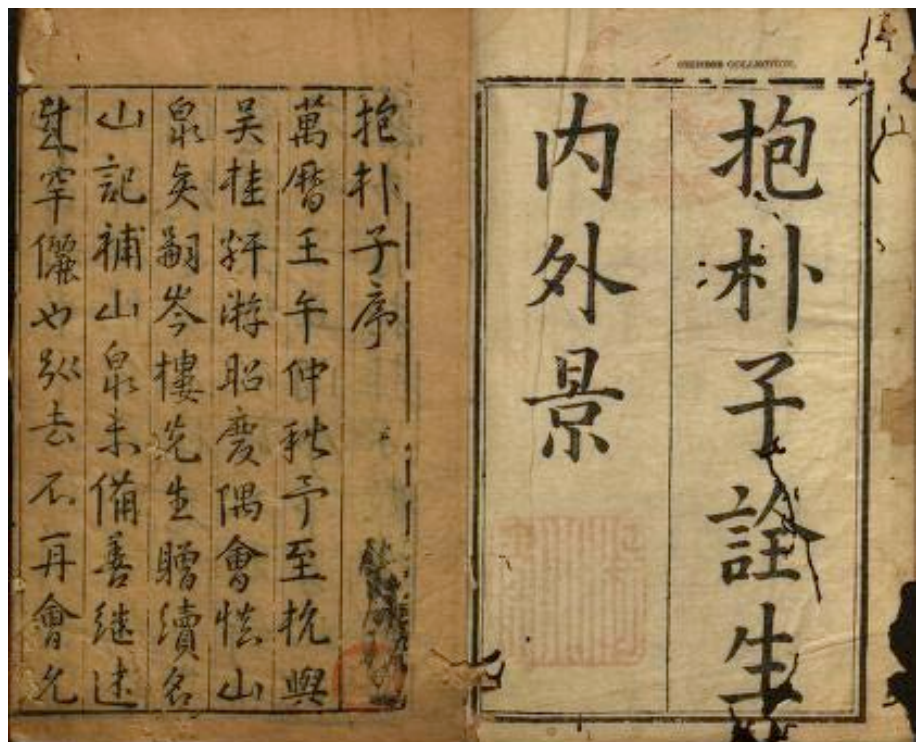 CHINESE COLLECTION.
抱朴子詮生
内外景
抱朴子序
萬曆壬午仲秋予至杭與
吴桂軒游昭慶隅會慎山
泉矣嗣岑樓先生贈續名
山記補山泉未備善继述
罕儷也别去不再會允